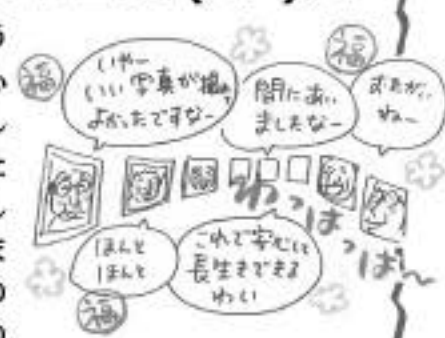 福
いやー
いい写真が撮れて
よかったですなー
間にあい
ましたなー
福
おたがい
ねー
わっはっはー
ほんと
ほんと
福
これで安心して
長生きできる
わい